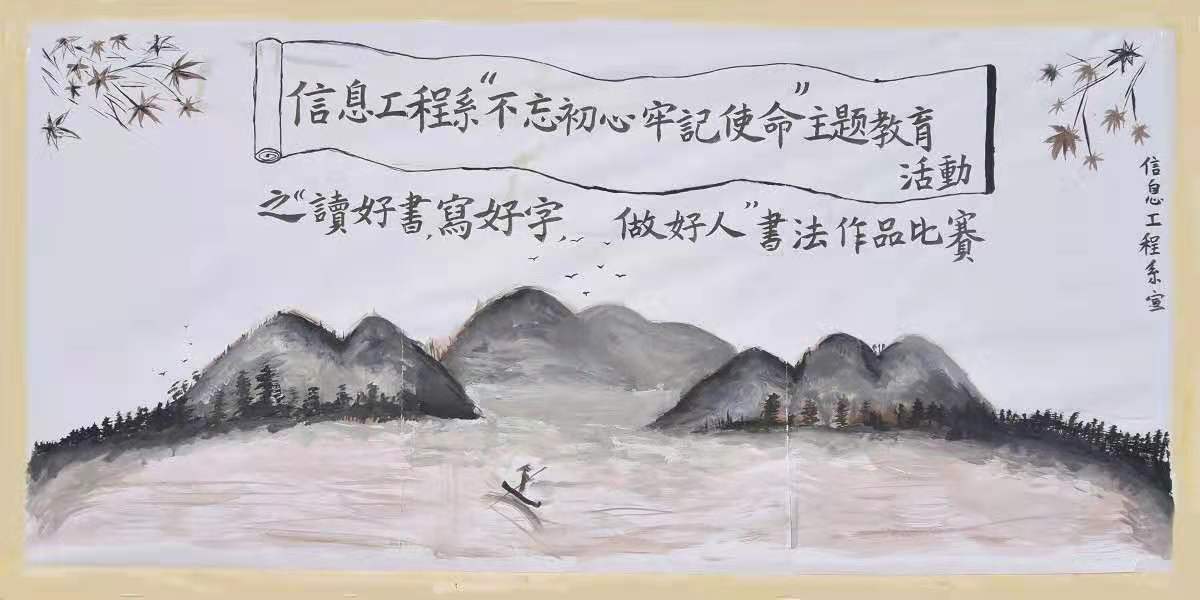 信息工程系“不忘初心牢記使命”主题教育
活動
之“讀好書,寫好字, 做好人”書法作品比賽
信息工程系宣